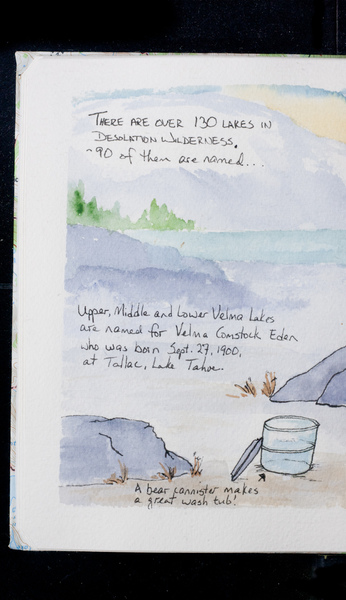 THERE ARE OVER 130 LAKES IN
DESOLATION WILDERNESS.
~90 of them are named...
Upper, Middle and Lower Velma Lakes
are named for Velma Comstock Eden
who was born Sept. 27, 1900,
at Tallac, Lake Tahoe.
A bear cannister makes
a great wash tub!